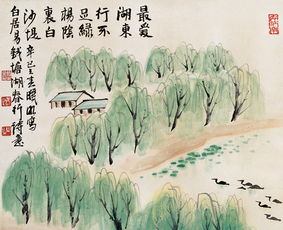 最愛
湖東
行不
足綠
楊陰
裏白
沙堤 辛巳 春 寫
白居易錢塘湖春行詩意